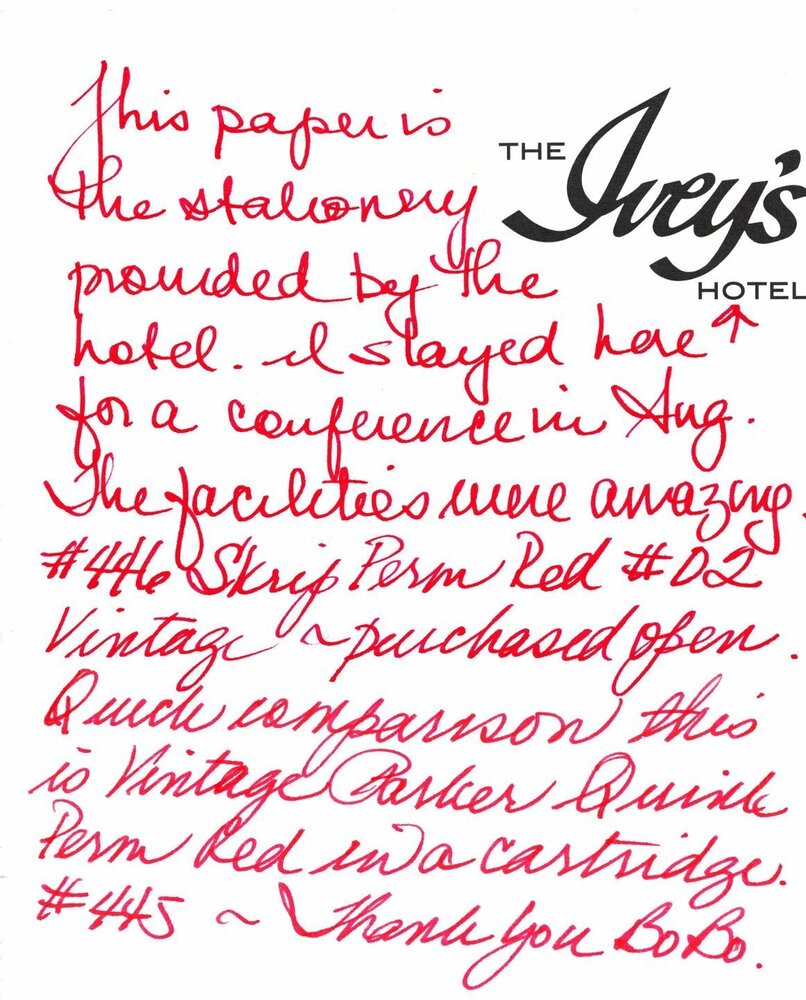 This paper is
THE Ivey's HOTEL
the stationery
provided by the
hotel. I stayed here ↑
for a conference in Aug.
The facilities were amazing.
#446 Skrip Perm Red #02
Vintage ~ purchased open.
Quick comparison this
is Vintage Parker Quink
Perm Red in a cartridge.
#445 ~ Thank you BoBo.